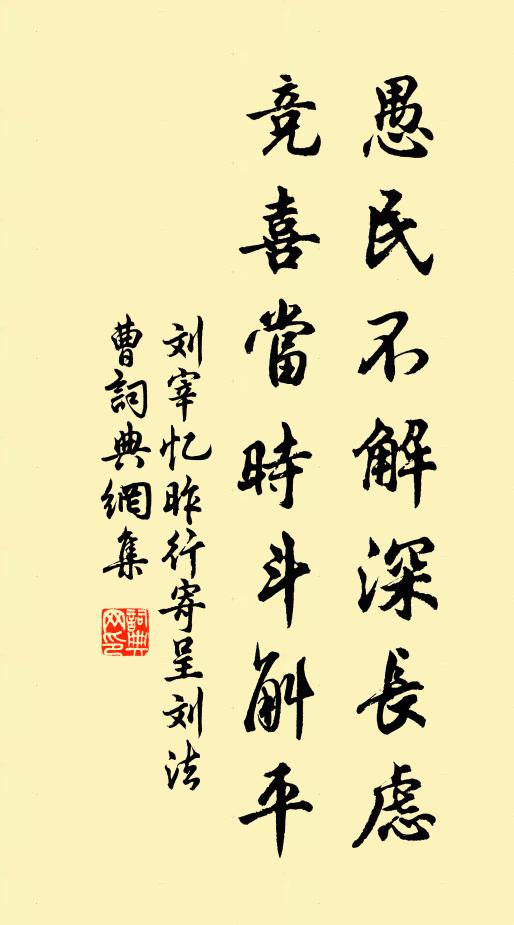 愚民不解深長慮
竞喜當時斗斛平
刘宰忆昨行寄呈刘法
曹詞典網集
詞典网印